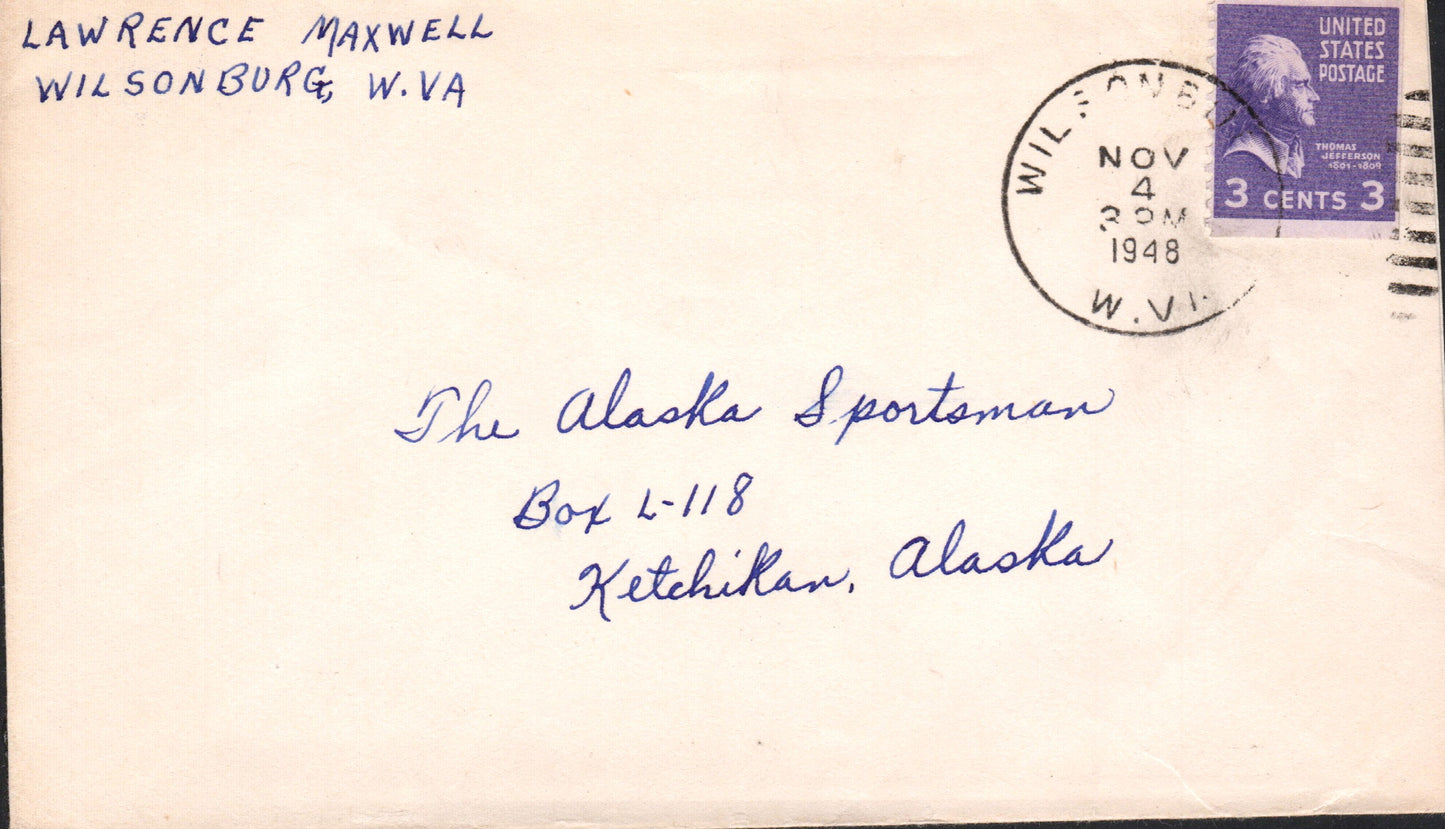 LAWRENCE MAXWELL
WILSONBURG, W.VA
UNITED
STATES
POSTAGE
THOMAS
JEFFERSON
1801-1809
3 CENTS 3
NOV
4
3 PM
1948
W.V
The Alaska Sportsman
Box L-118
Ketchikan, Alaska